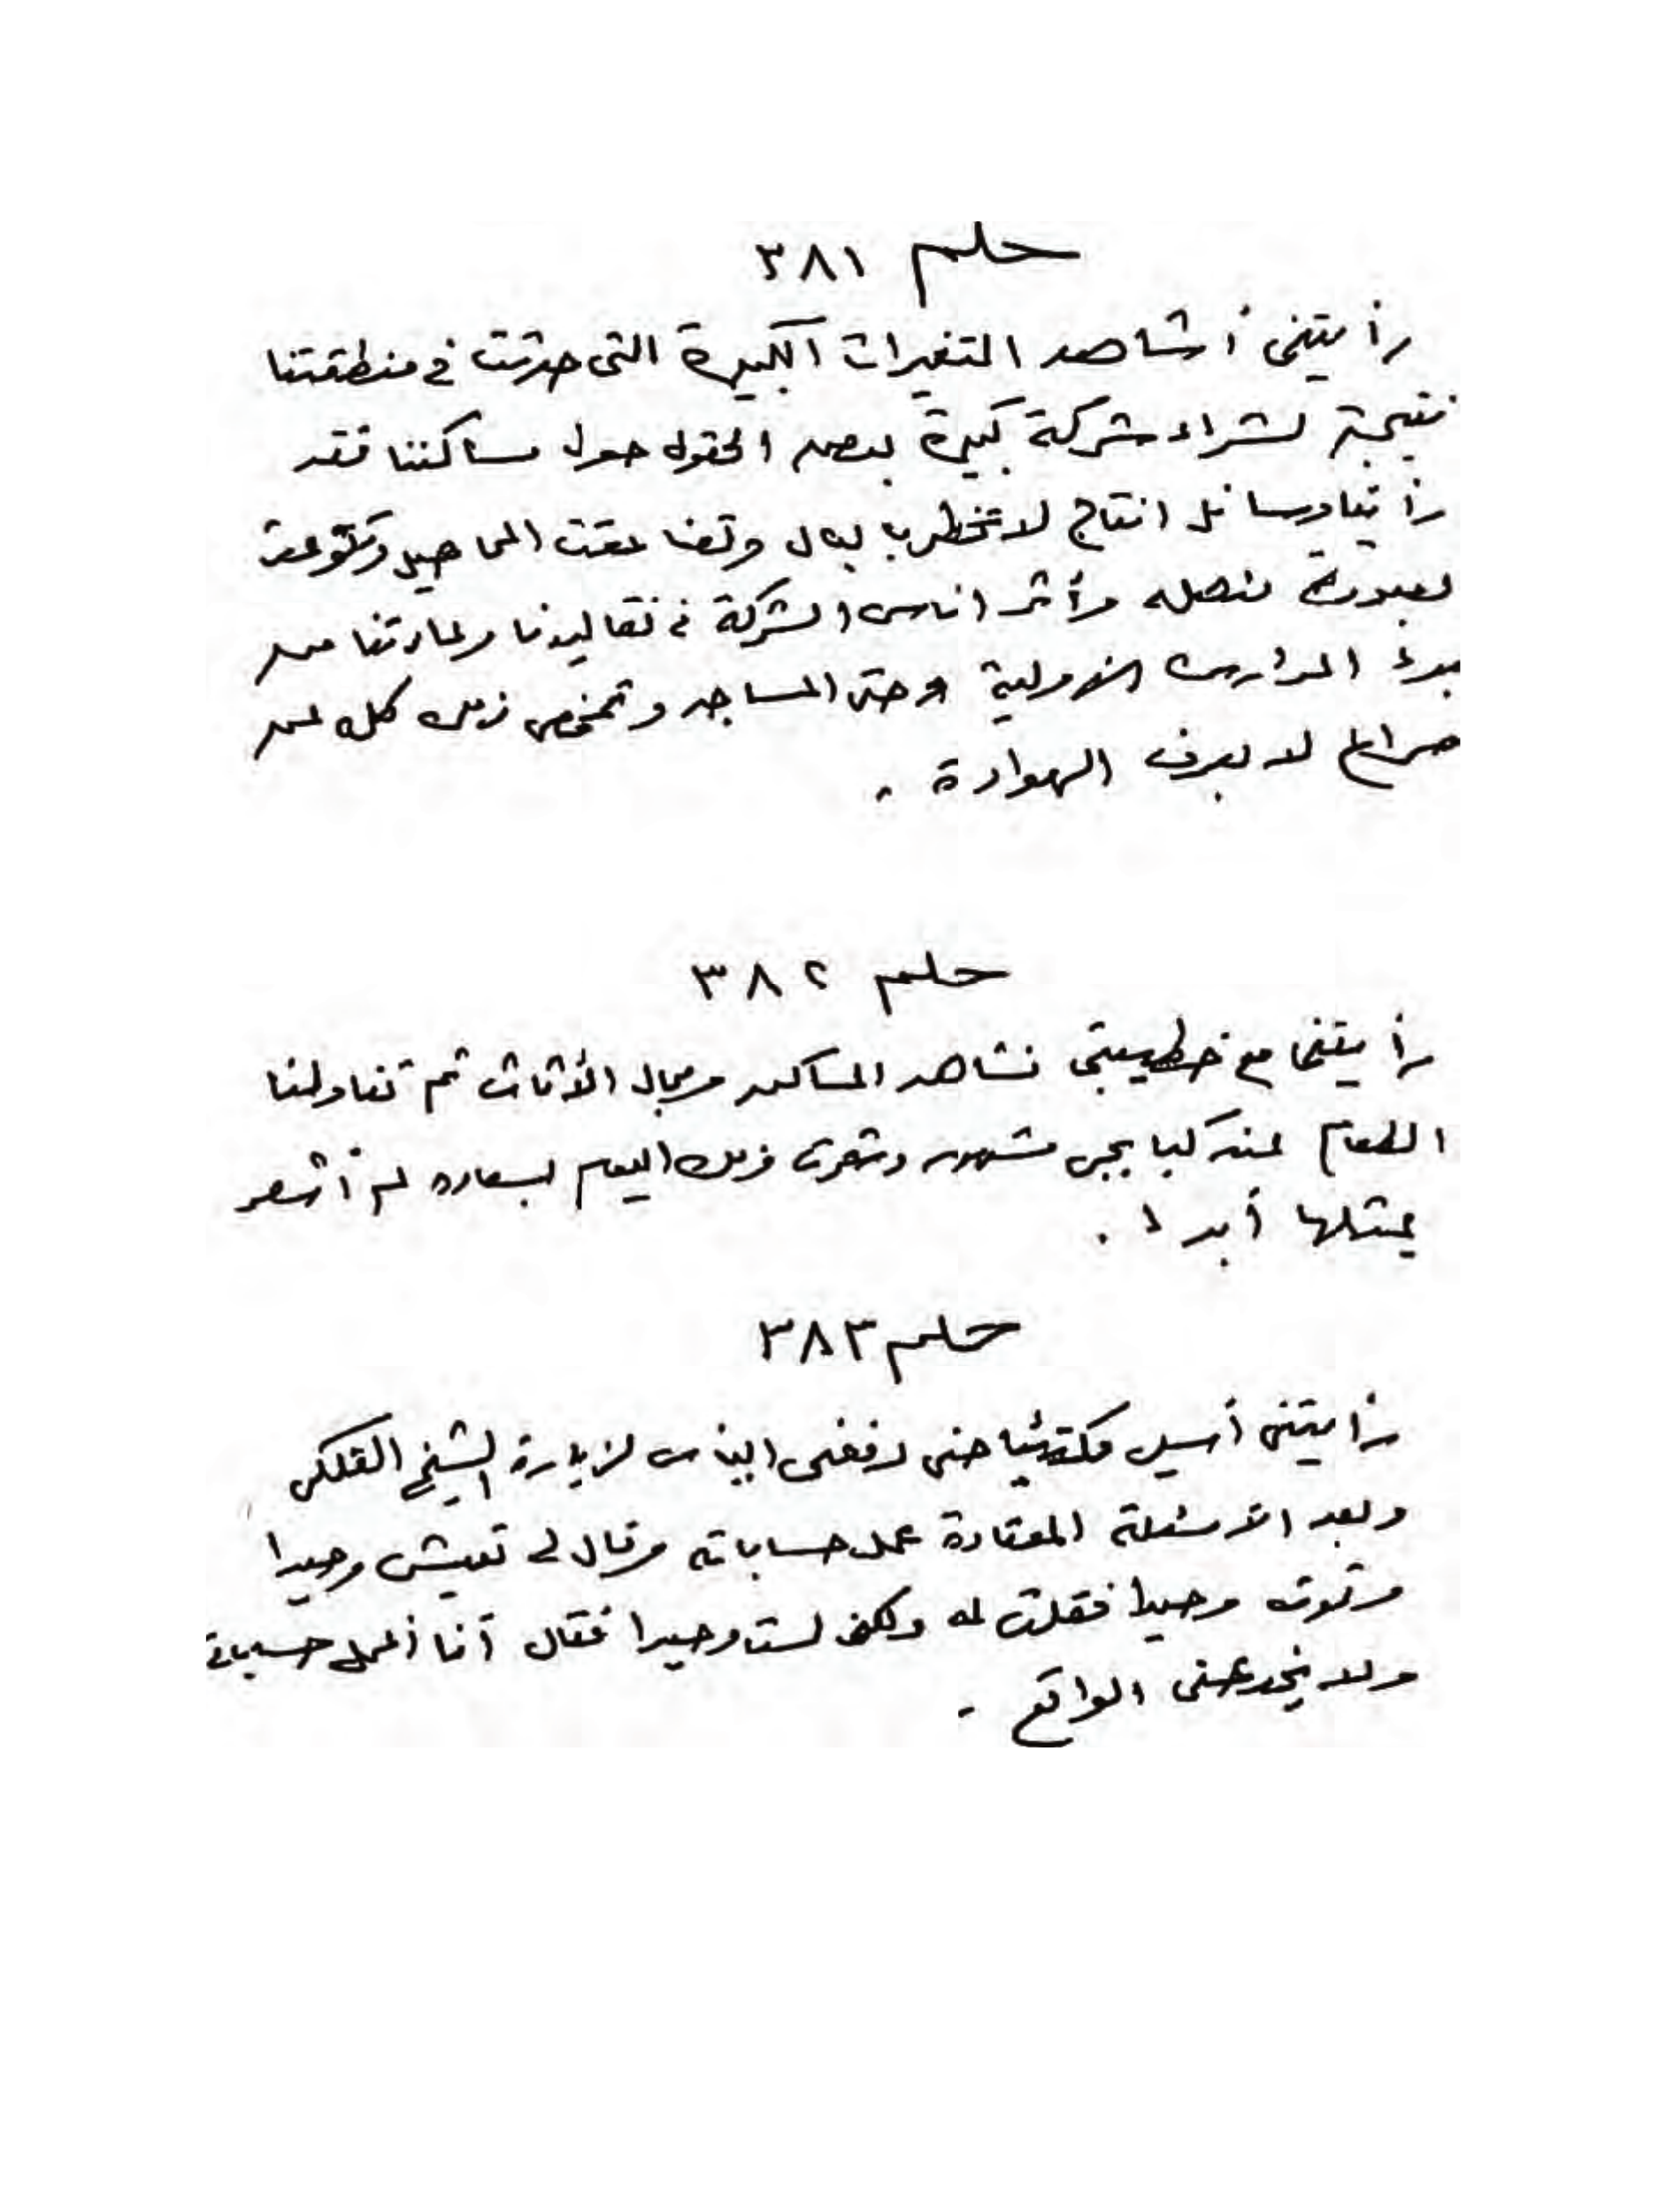 حلم ٣٨١
رأيتنى أشاهد التغيرات الكبيرة التى حدثت فى منطقتنا
نتيجة لشراء شركة كبيرة بعض الحقول حول مساكننا فقد
رأينا وسائل انتاج لا تخطر ببال وتضاعفت المحاصيل وتنوعت
بصورة مذهلة وأثر اناس الشركة فى تقاليدنا وعادتنا من
بدء المدارس الاولية وحتى المساجد وتمخض ذلك كله عن
صراع لا يعرف الهوادة .
حلم ٣٨٢
رأيتنى مع خطيبتى نشاهد المساكن ومحال الأثاث ثم تناولنا
الطعام عند كبابجى مشهور وشعرت فى ذلك اليوم بسعاده لم أشعر
بمثلها أبدا .
حلم ٣٨٣
رأيتنى أسير مكتئبا حتى دفعنى اليأس لزيارة الشيخ الفلكى
وبعد الأسئلة المعتادة عمل حساباته وقال لى تعيش وحيدا
وتموت وحيدا فقلت له ولكنى لست وحيدا فقال أنا أعمل حساباتى
ولا يخدعنى الواقع .